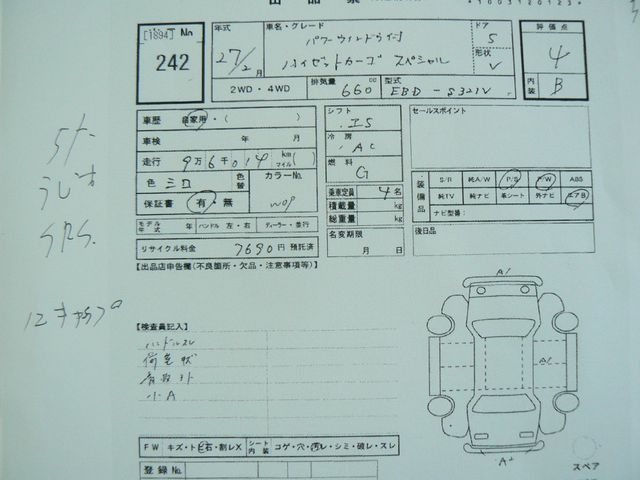 [1894] No
242
年式
27/2月
車名・グレード
パワーウィンドウ付
ハイゼットカーゴ スペシャル
ドア
5
形状
V
評価点
4
内装
B
2WD・4WD
排気量 660 cc
型式 EBD-S321V
車歴 自家用・( )
車検 年 月
走行 9万6千014 km(マイル)
色 シロ
色替
カラーNo.
W09
保証書 有・無
モデル年式 年 ハンドル 左・右 ディーラー・並行
リサイクル料金 7690円 預託済
シフト
I5
冷房
AC
燃料
G
乗車定員 4名
積載量 kg
総重量 kg
名変期限
月 日
セールスポイント
装備品
S/R 純A/W P/S P/W ABS
純TV 純ナビ 革シート 外ナビ エアB
ナビ型名:
後日品
【出品店申告欄(不良箇所・欠品・注意事項等)】
5ナ
ラジオ
SRS.
【検査員記入】
ハンドルスレ
小A
A1
FW キズ・ト ビ石・割レX シート内装 コゲ・穴・汚レ・シミ・破レ・スレ
登録No.
スペア